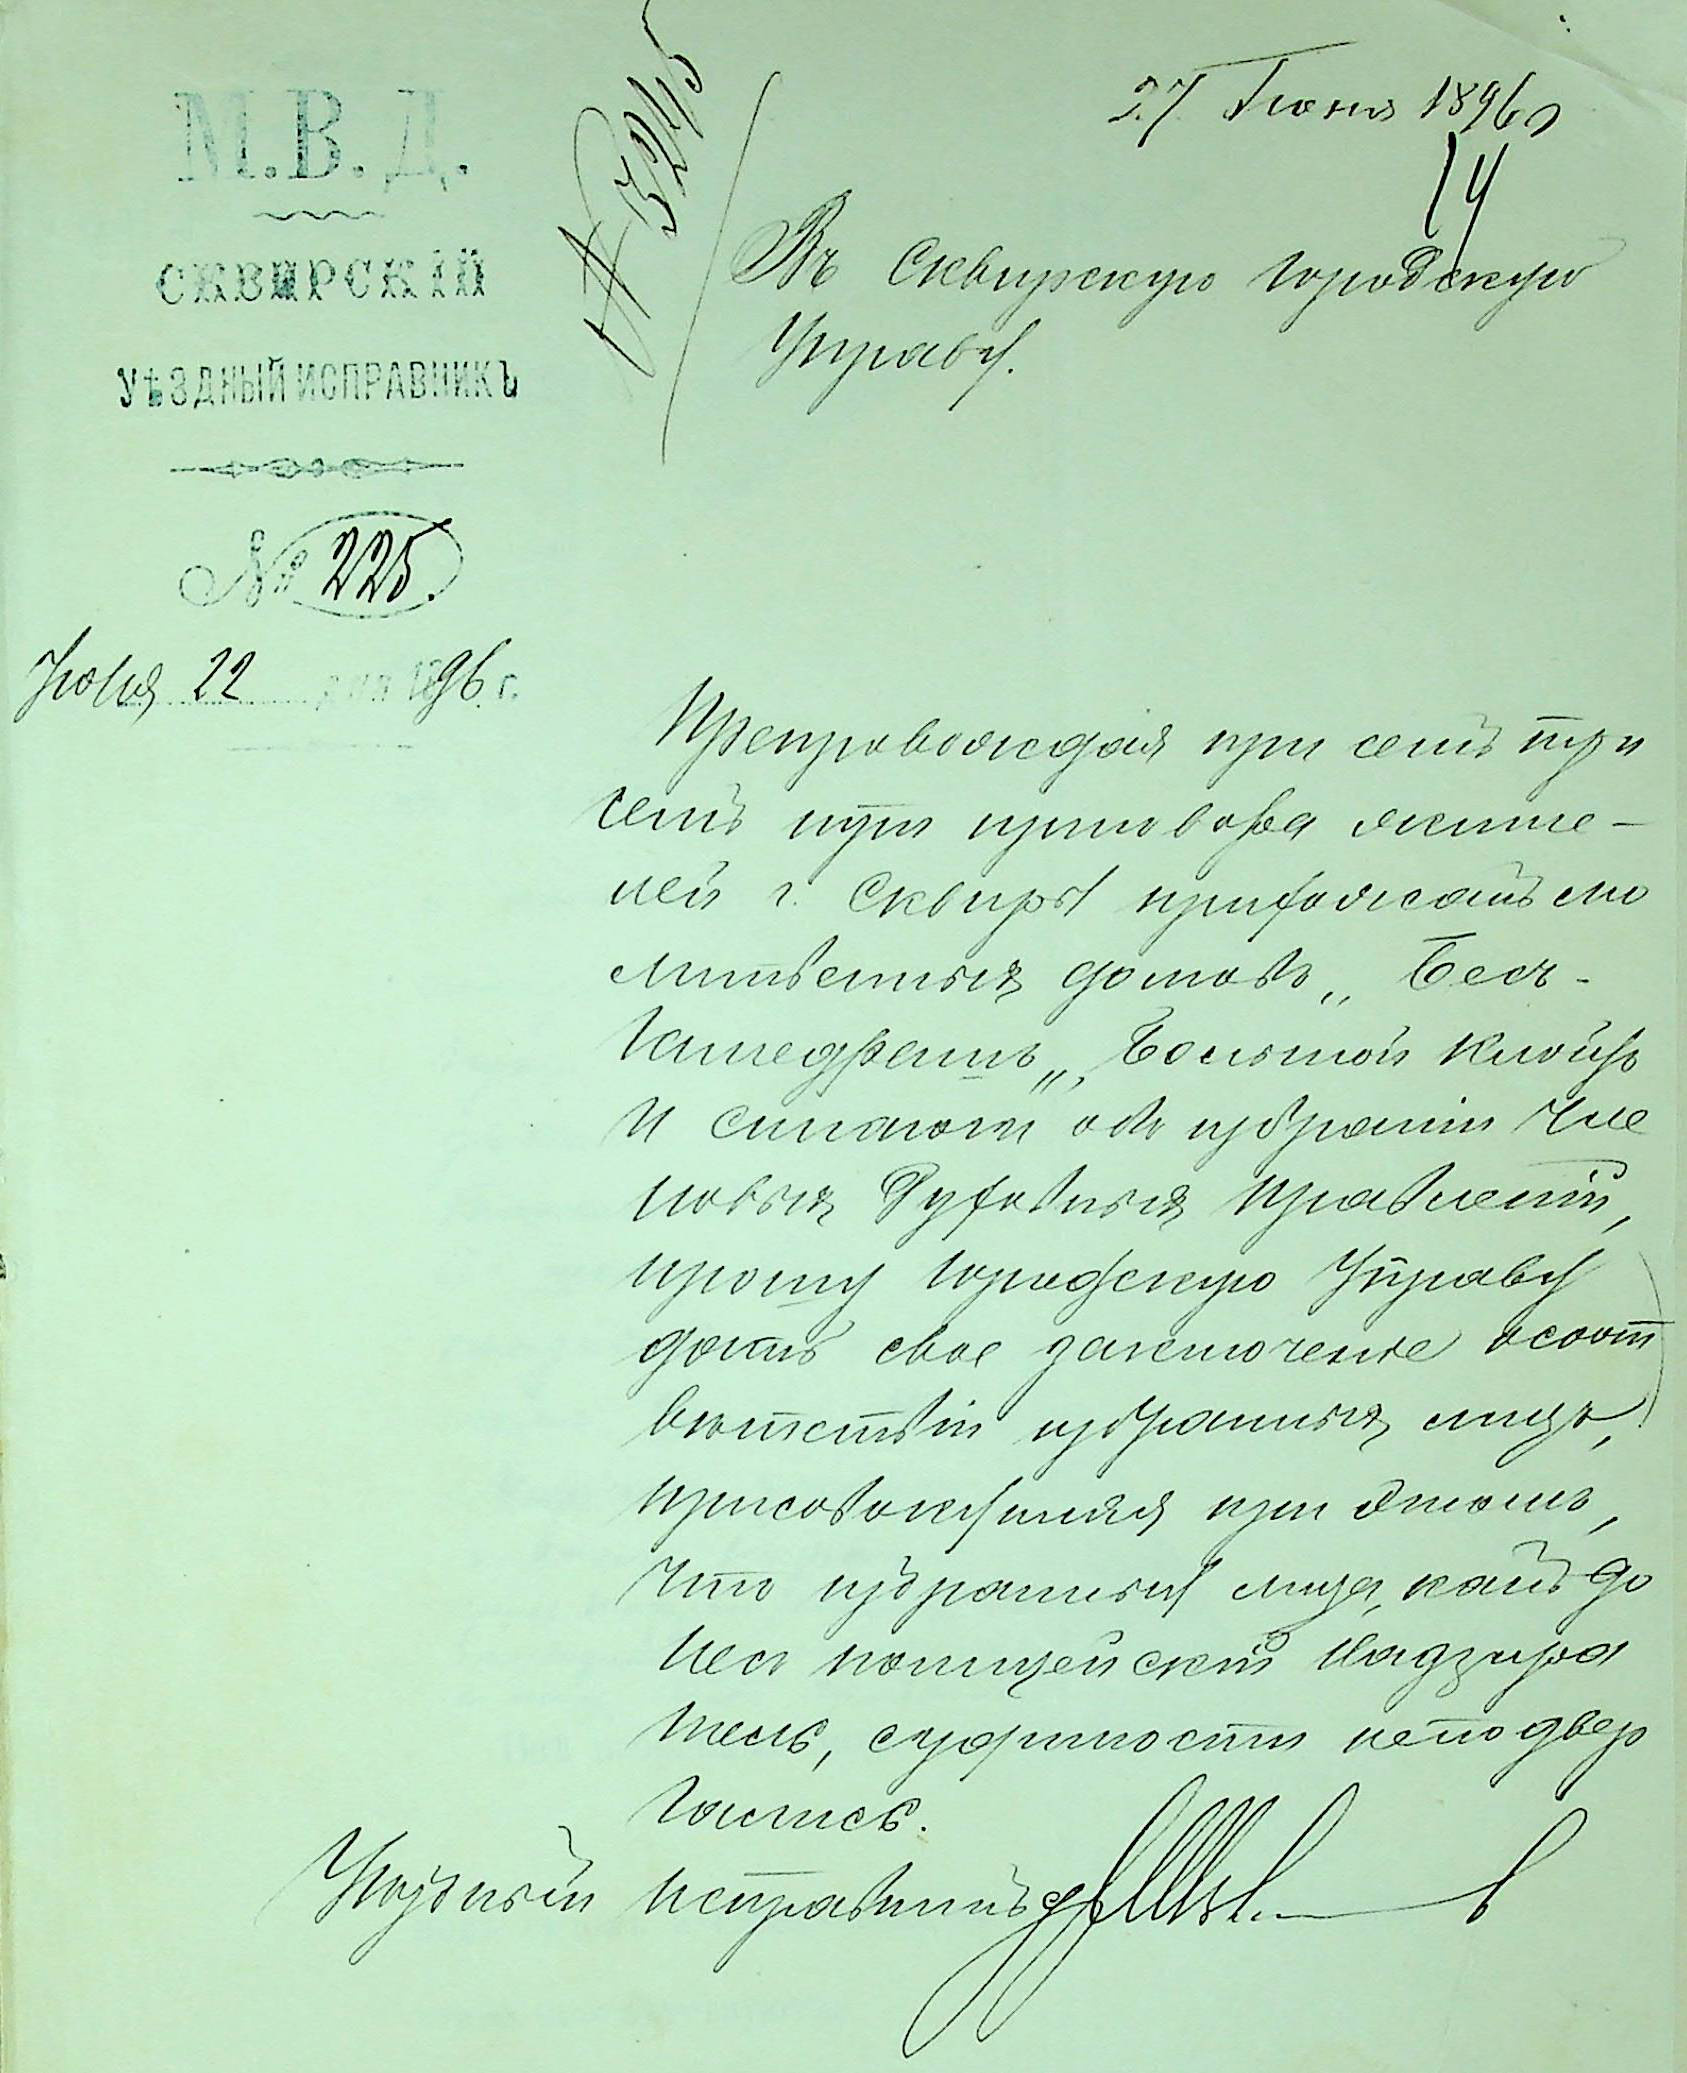 27 Іюня 1896 г
14
№ 3245
М. В. Д.
СКВИРСКІЙ
УѢЗДНЫЙ ИСПРАВНИКЪ
№ 225.
Іюня 22 дня 1896 г.
Въ Сквирскую городскую
Управу.
Препровождая при семъ при
семъ три приговора жите-
лей г. Сквиры прихожанъ мо
литвенныхъ домовъ „Бесъ-
Гамедрашъ„ „Большой Клойзъ
и объ избраніи чле
новъ Духовныхъ Правленій,
прошу городскую Управу
дать свое заключеніе о соот
вѣтствіи избранныхъ лицъ,
присовокупляя при этомъ,
что избранныя лица, какъ до
несъ полицейскій надзира
тель, судимости неподвер
гались.
Уѣздный Исправникъ